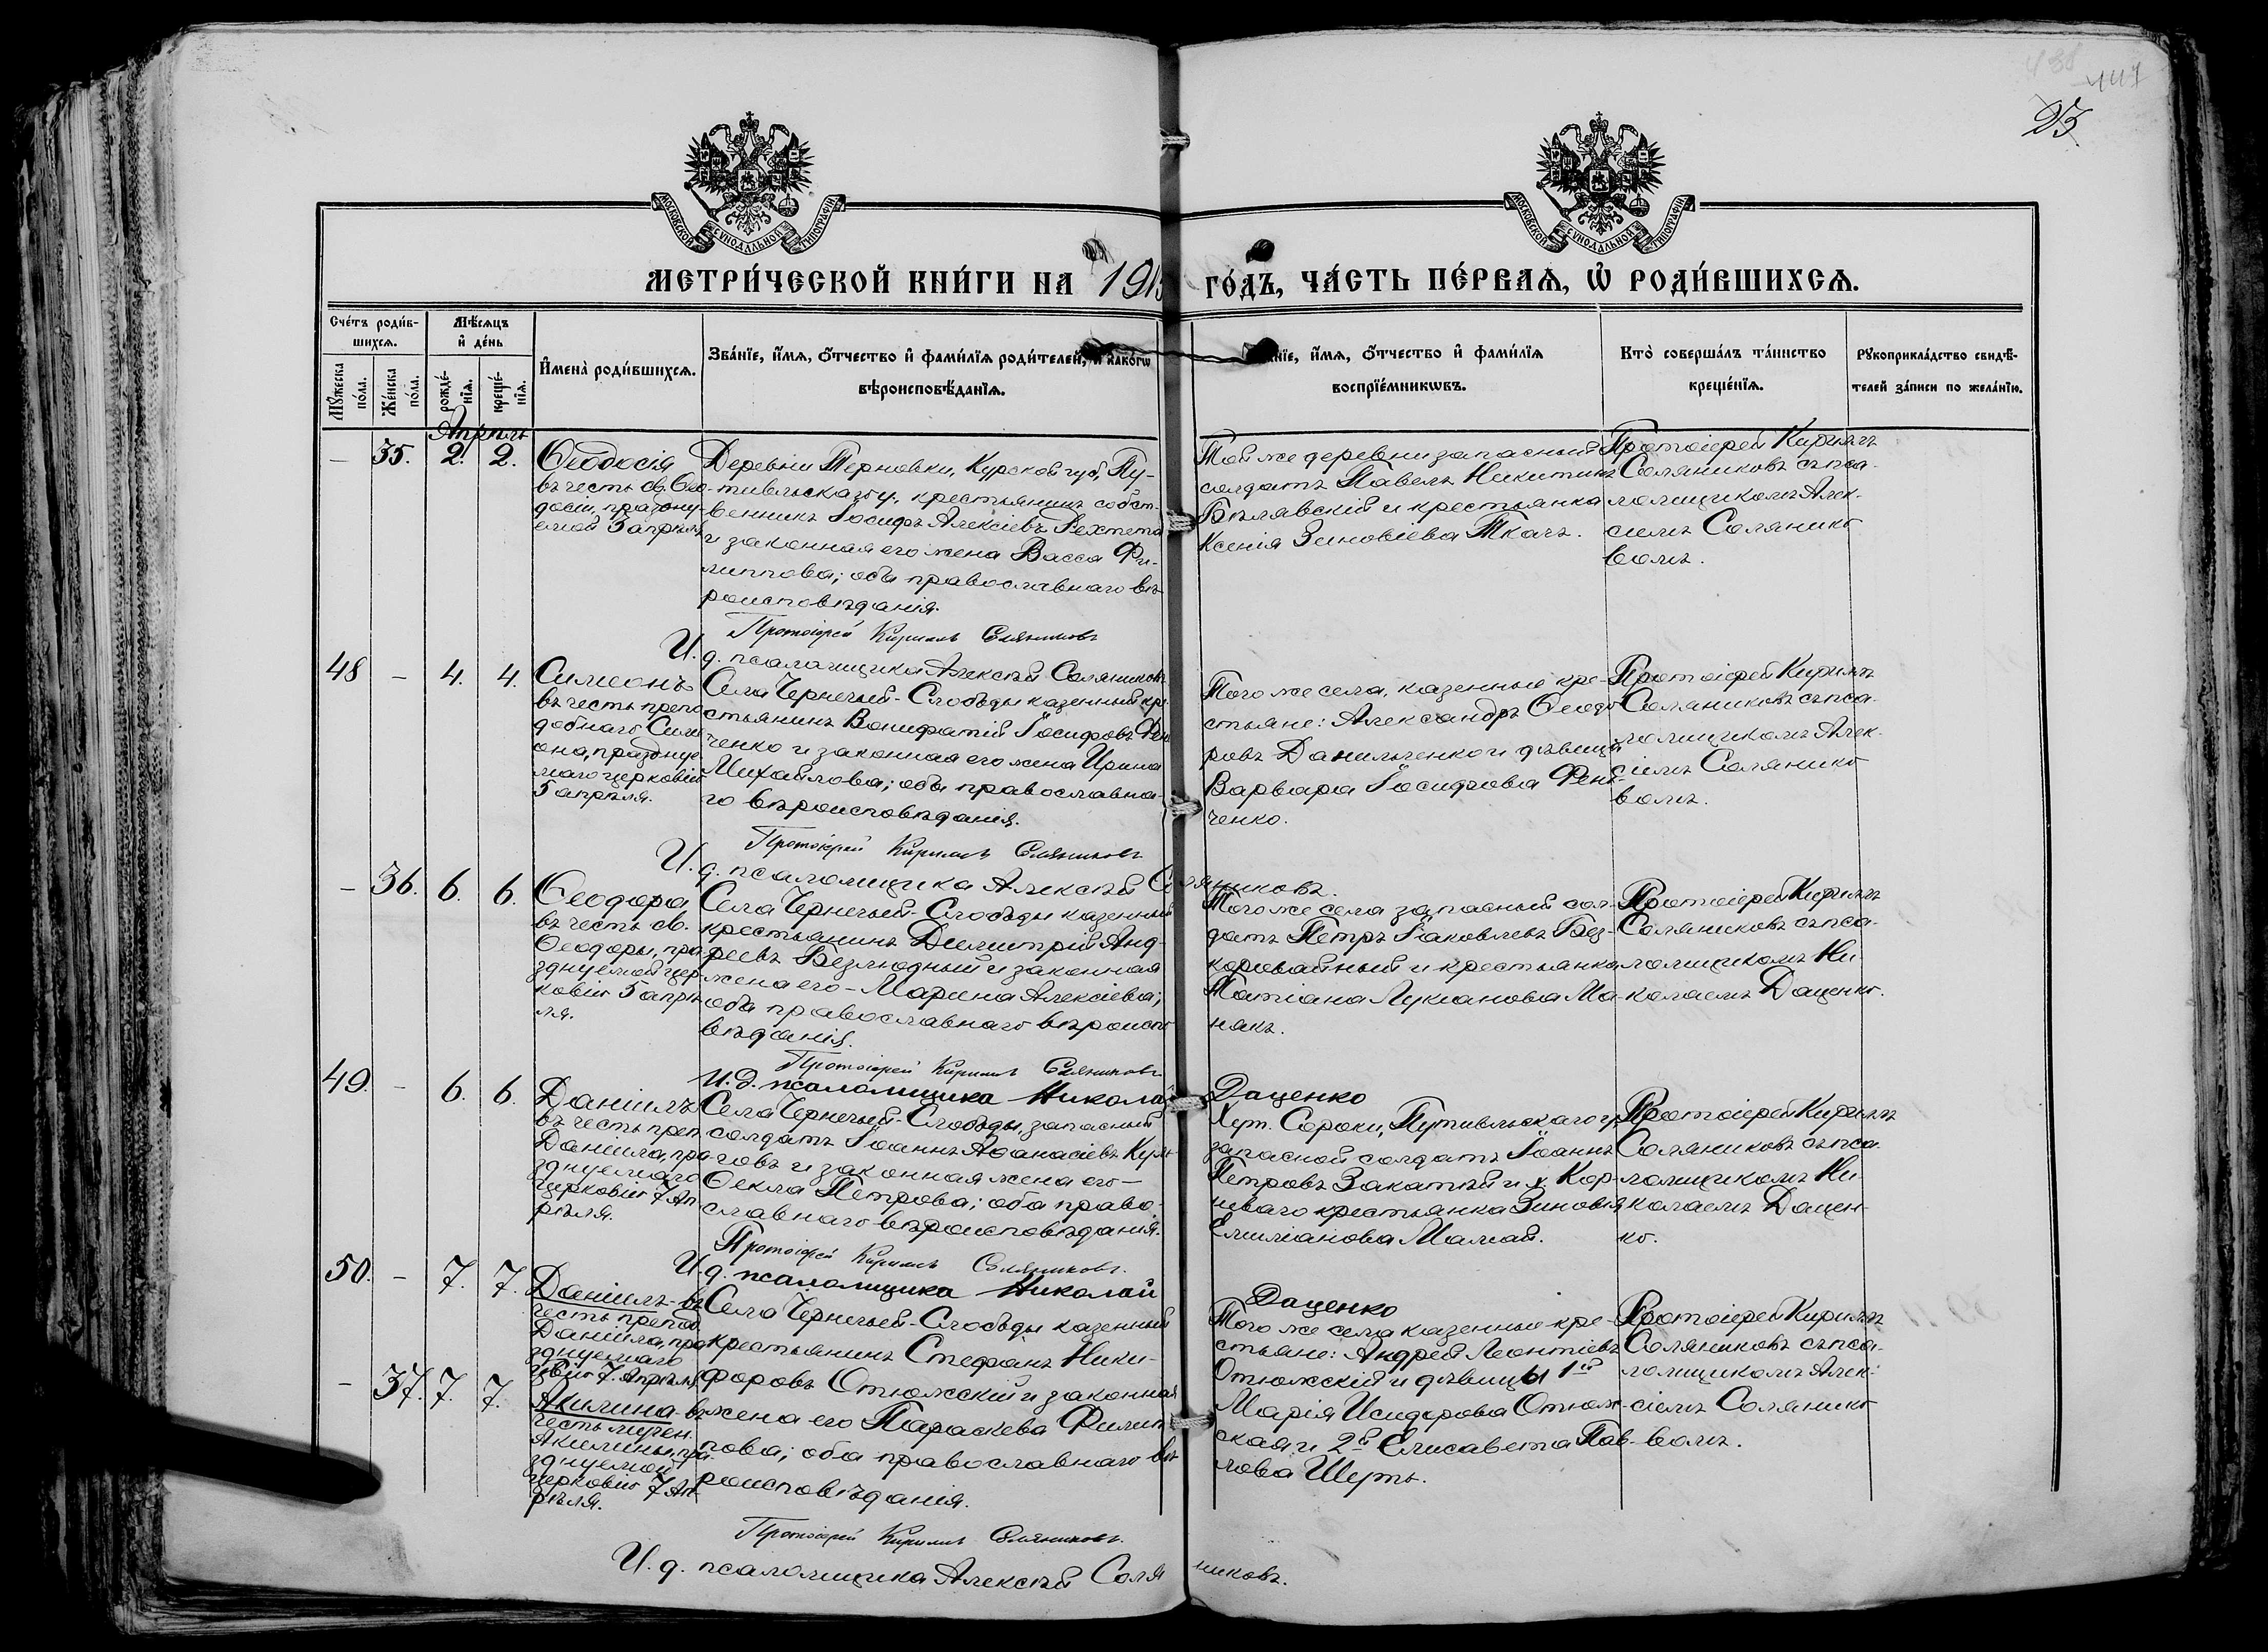 438
447
23
МОСКОВСКОЙ СѴНОДАЛЬНОЙ ТИПОГРАФІИ
МОСКОВСКОЙ СѴНОДАЛЬНОЙ ТИПОГРАФІИ
МЕТРИ́ЧЕСКОЙ КНИ́ГИ НА 191 ГО́ДЪ, ЧА́СТЬ ПЕ́РВАѦ, Ѡ҆ РОДИ́ВШИХСѦ.
Сче́тъ роди́в-
шихсѧ.
Мꙋ́жеска
по́ла.
Же́нска
по́ла.
Мѣ́сѧцъ
и҆ де́нь
рожде́-
нїѧ.
креще́-
нїѧ.
И҆мена̀ роди́вшихсѧ.
Зва́нїе, и҆́мѧ, ѻ҆́тчество и҆ фами́лїѧ роди́телей, и҆ како́гѡ
вѣроисповѣ́данїѧ.
Зва́нїе, и҆́мѧ, ѻ҆́тчество и҆ фами́лїѧ
воспрїе́мникѡвъ.
Кто̀ соверша́лъ та́инство
креще́нїѧ.
Рꙋкоприкла́дство свидѣ́-
телей за́писи по жела́нїю.
Апрѣль
— 35. 2. 2.
Ѳеодосія
въ честь св. Ѳео-
досіи, празону-
емой 3 апрѣля
Деревни Терновки, Курской губ., Пу-
тивльскаго у., крестьянинъ собст-
венникъ Іосифъ Алексіевъ Рехтета
и законная его жена Васса Фи-
липпова; оба православнаго вѣ-
роисповѣданія.
Протоіерей Кириллъ Соляниковъ
И. д. псаломщика Алексѣй Соляниковъ
Той же деревни запасный
солдатъ Павелъ Никитинъ
Бѣлявскій и крестьянка
Ксенія Зиновіева Ткачъ.
Протоіерей Кириллъ
Соляниковъ съ пса-
ломщикомъ Алек-
сіемъ Солянико
вомъ.
48 — 4. 4.
Симеонъ
въ честь препо
добнаго Симе
она, празднуе
маго церковію
5 апрѣля.
Села Чернечьей-Слободы казенный кре
стьянинъ Вонифатій Іосифовъ Фен
ченко и законная его жена Ирина
Михайлова; оба православна-
го вѣроисповѣданія.
Протоіерей Кириллъ Соляниковъ
И. д. псаломщика Алексѣй Соляниковъ.
Того же села, казенные кре-
стьяне: Александръ Ѳеодо
ровъ Данильченко и дѣвица
Варвара Іосифова Фен-
ченко.
Протоіерей Кириллъ
Соляниковъ съ пса-
ломщикомъ Алек-
сіемъ Солянико
вомъ.
— 36. 6. 6.
Ѳеодора
въ честь св.
Ѳеодоры, пра
зднуемой цер-
ковію 5 апрѣ
ля.
Села Чернечьей-Слободы казенный
крестьянинъ Димитрій Анд-
реевъ Безлюдный и законная
жена его — Марина Алексіева;
оба православнаго вѣроиспо
вѣданія.
Протоіерей Кириллъ Соляниковъ
И. д. псаломщика Николай Даценко
Того же села запасный сол-
датъ Петръ Іаковлевъ Без-
коровайный и крестьянка
Татіана Лукіанова Ма-
някъ.
Протоіерей Кириллъ
Соляниковъ съ пса-
ломщикомъ Ни-
колаемъ Даценко.
49. — 6. 6.
Даніилъ
въ честь преп
Даніила, пра-
зднуемаго
церковію 7 Ап
рѣля.
Села Чернечьей-Слободы, запасный
солдатъ Іоаннъ Аѳанасіевъ Куль-
говъ и законная жена его —
Ѳекла Петрова; оба право-
славнаго вѣроисповѣданія.
Протоіерей Кириллъ Соляниковъ.
И. д. псаломщика Николай Даценко
Хут. Сороки, Путивльскаго у,
запасной солдатъ Іоаннъ
Петровъ Закатѣй и х. Кор-
ниваго крестьянка Зиновія
Емиліанова Мамай.
Протоіерей Кириллъ
Соляниковъ съ пса
ломщикомъ Ни-
колаемъ Дацен-
ко.
50. — 7. 7.
Даніилъ — въ
честь препод
Даніила, пра
зднуемаго
цвію 7. Апрѣля
— 37. 7. 7.
Акилина — въ
честь мучен.
Акилины, пра
зднуемой
церковію 7 Ап
рѣля.
Села Чернечьей-Слободы казенный
крестьянинъ Стефанъ Ники-
форовъ Отюжскій и законная
жена его Параскева Филип
пова; оба православнаго вѣ
роисповѣданія.
Протоіерей Кириллъ Соляниковъ.
И. д. псаломщика Алексѣй Соляниковъ.
Того же села казенные кре-
стьяне: Андрей Леонтіевъ
Отюжскій и дѣвицы 1-я
Марія Исидорова Отюж-
ская и 2-я Елисавета Пав-
лова Шерть.
Протоіерей Кириллъ
Соляниковъ съ пса-
ломщикомъ Алек-
сіемъ Солянико
вомъ.